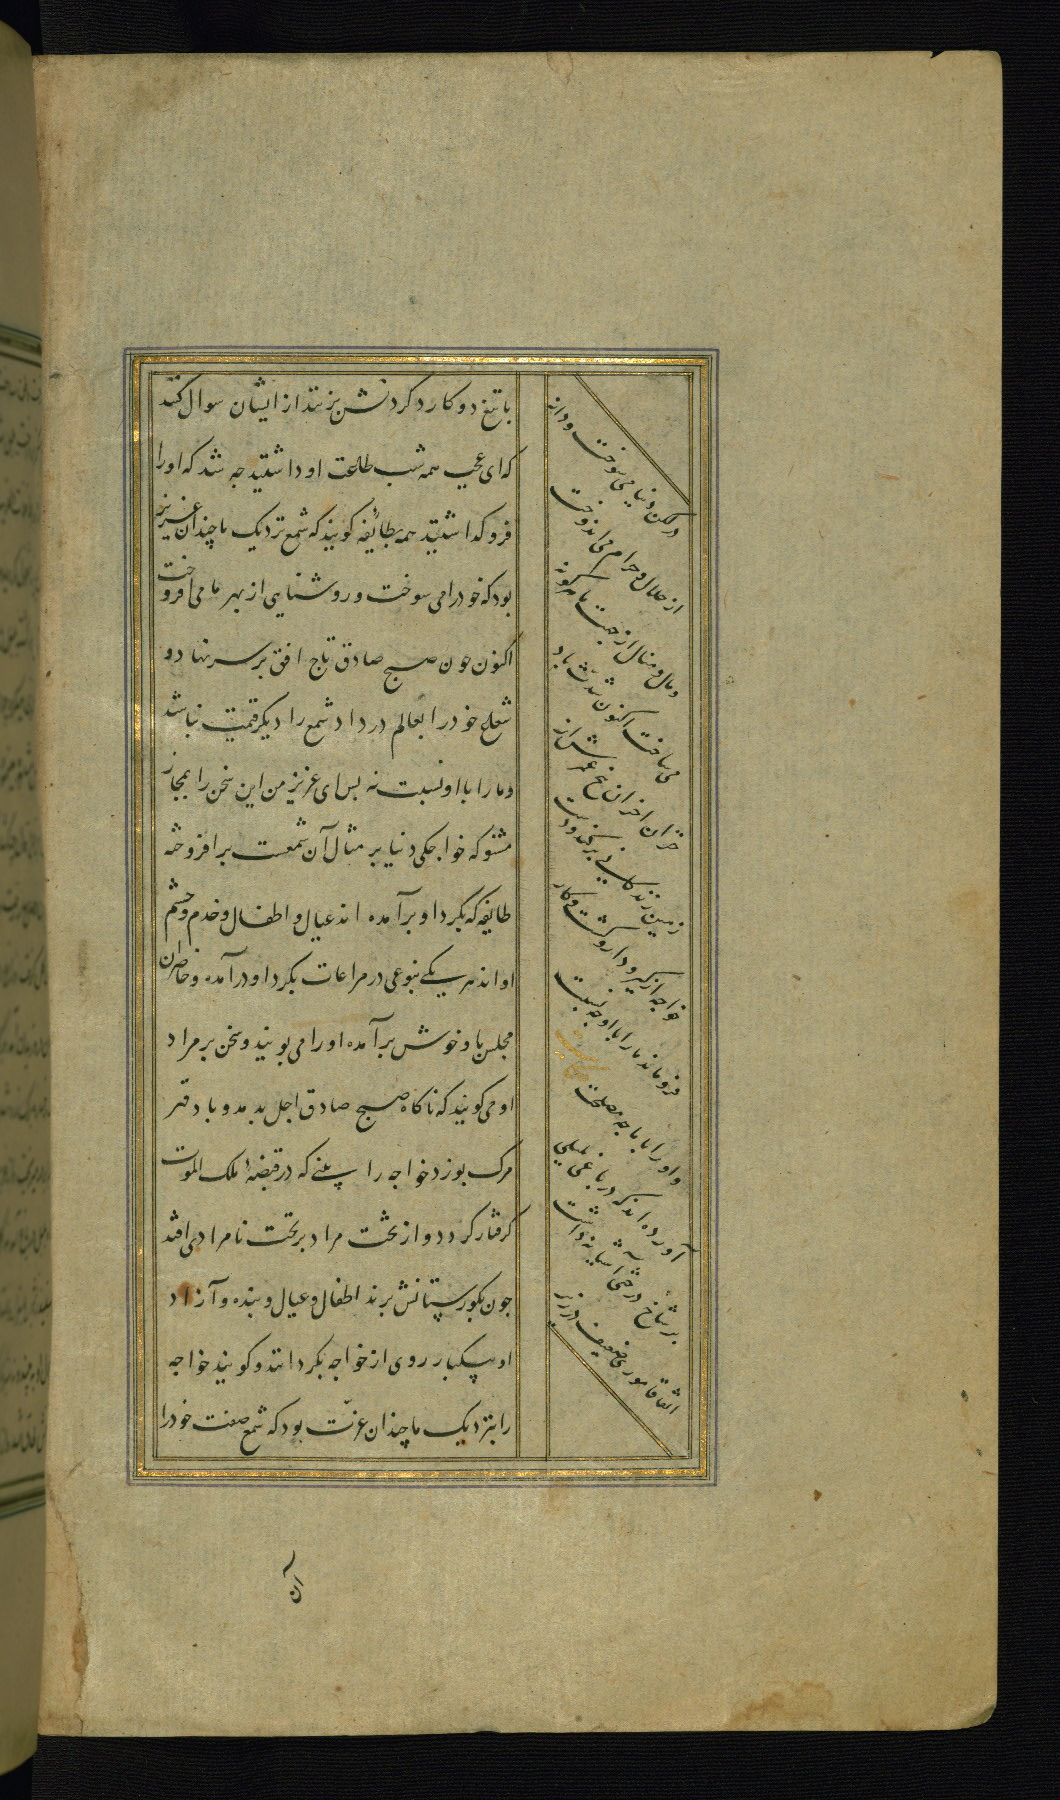 با تیغ و کارد گردنش بزنند از ایشان سوال کنند
که ای عجب همه شب طلعت او داشتید چه شد که او را
فرو گذاشتید همه طائفه گویند که شمع نزدیک ما چندان عزیز
بود که خود را می سوخت و روشنایی از بهر ما می افروخت
اکنون چون صبح صادق تاج افق بر سر نهاد و
شعاع خود را بعالم در داد شمع را دیگر قیمت نباشد
و ما را با او نسبت نه پس ای عزیز من این سخن را بمجاز
مشنو که خواجکی دنیا بر مثال آن شمعست بر افروخته
طایفه که بگرد او بر آمده اند عیال و اطفال و خدم و حشم
او اند هر یکی بنوعی در مراعات بگرد او در آمده و حاضران
مجلس با و خوش بر آمده او را می بویند و سخن بر مراد
او می کویند که ناکاه صبح صادق اجل بدمد و باد قهر
مرک بوزد خواجه را بینی که در قبضهٔ ملک الموت
کرفتار کردد و از تخت مراد بر تخت نامرادی افتد
چون بکورستانش برند اطفال و عیال و بنده و آزاد
او بیکبار روی از خواجه بکردانند و کویند خواجه
را بنزدیک ما چندان عزت بود که شمع صفت خود را
در لکن دنیا می سوخت و دانه
از حلال و حرام می اندوخت
و مال و منال از جهت ما
می ساخت اکنون تند باد
خزان احزان بیخ عمرش از
زمین زندکانی برکند و دست
خواجه از گیر و دار و کشت و کار
فرو ماند ما را با او چه نسبت
و او را با ما چه مصلحت
حکایت
آورده اند که در باغی بلبلی
بر شاخ درختی آشیانه داشت
اتفاقا موری ضعیف در زیر
آن